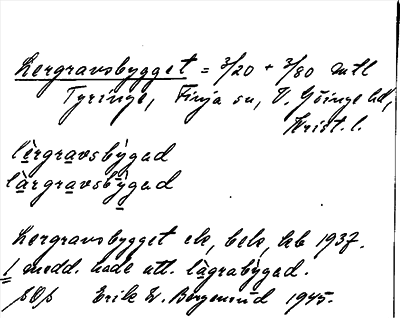 Lergravsbygget = 3/20 + 3/80 mtl
Tyringe, Finja sn, V. Göinge hd,
Krist. l.
lèrgravsby̍gad
làrgravsby̍gad
Lergravsbygget ek, bek, kb 1937.
1 medd. hade utt. làgraby̍gad.
Erik W. Bergmund 1945.